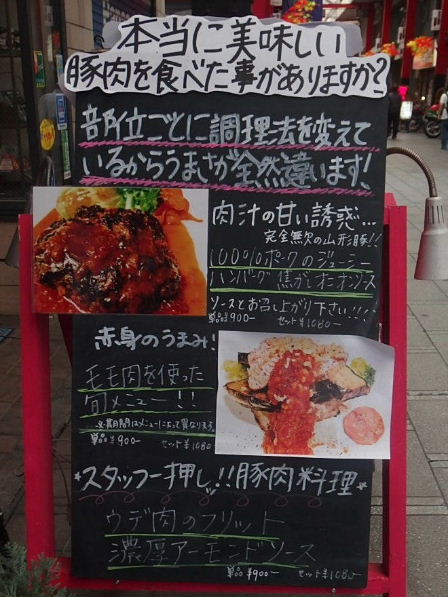 本当に美味しい
豚肉を食べた事がありますか?
部位ごとに調理法を変えて
いるからうまさが全然違います!
肉汁の甘い誘惑…
完全無欠の山形豚!!
100%ポークのジューシー
ハンバーグ 焦がしオニオンソース
ソースとお召し上がり下さい!!!
単品¥900ー セット¥1080ー
赤身のうまみ!
モモ肉を使った
旬メニュー!!
単品¥900 セット¥1080
スタッフ一押し!!豚肉料理
ウデ肉のフリット
濃厚アーモンドソース
単品¥900ー セット¥1080ー